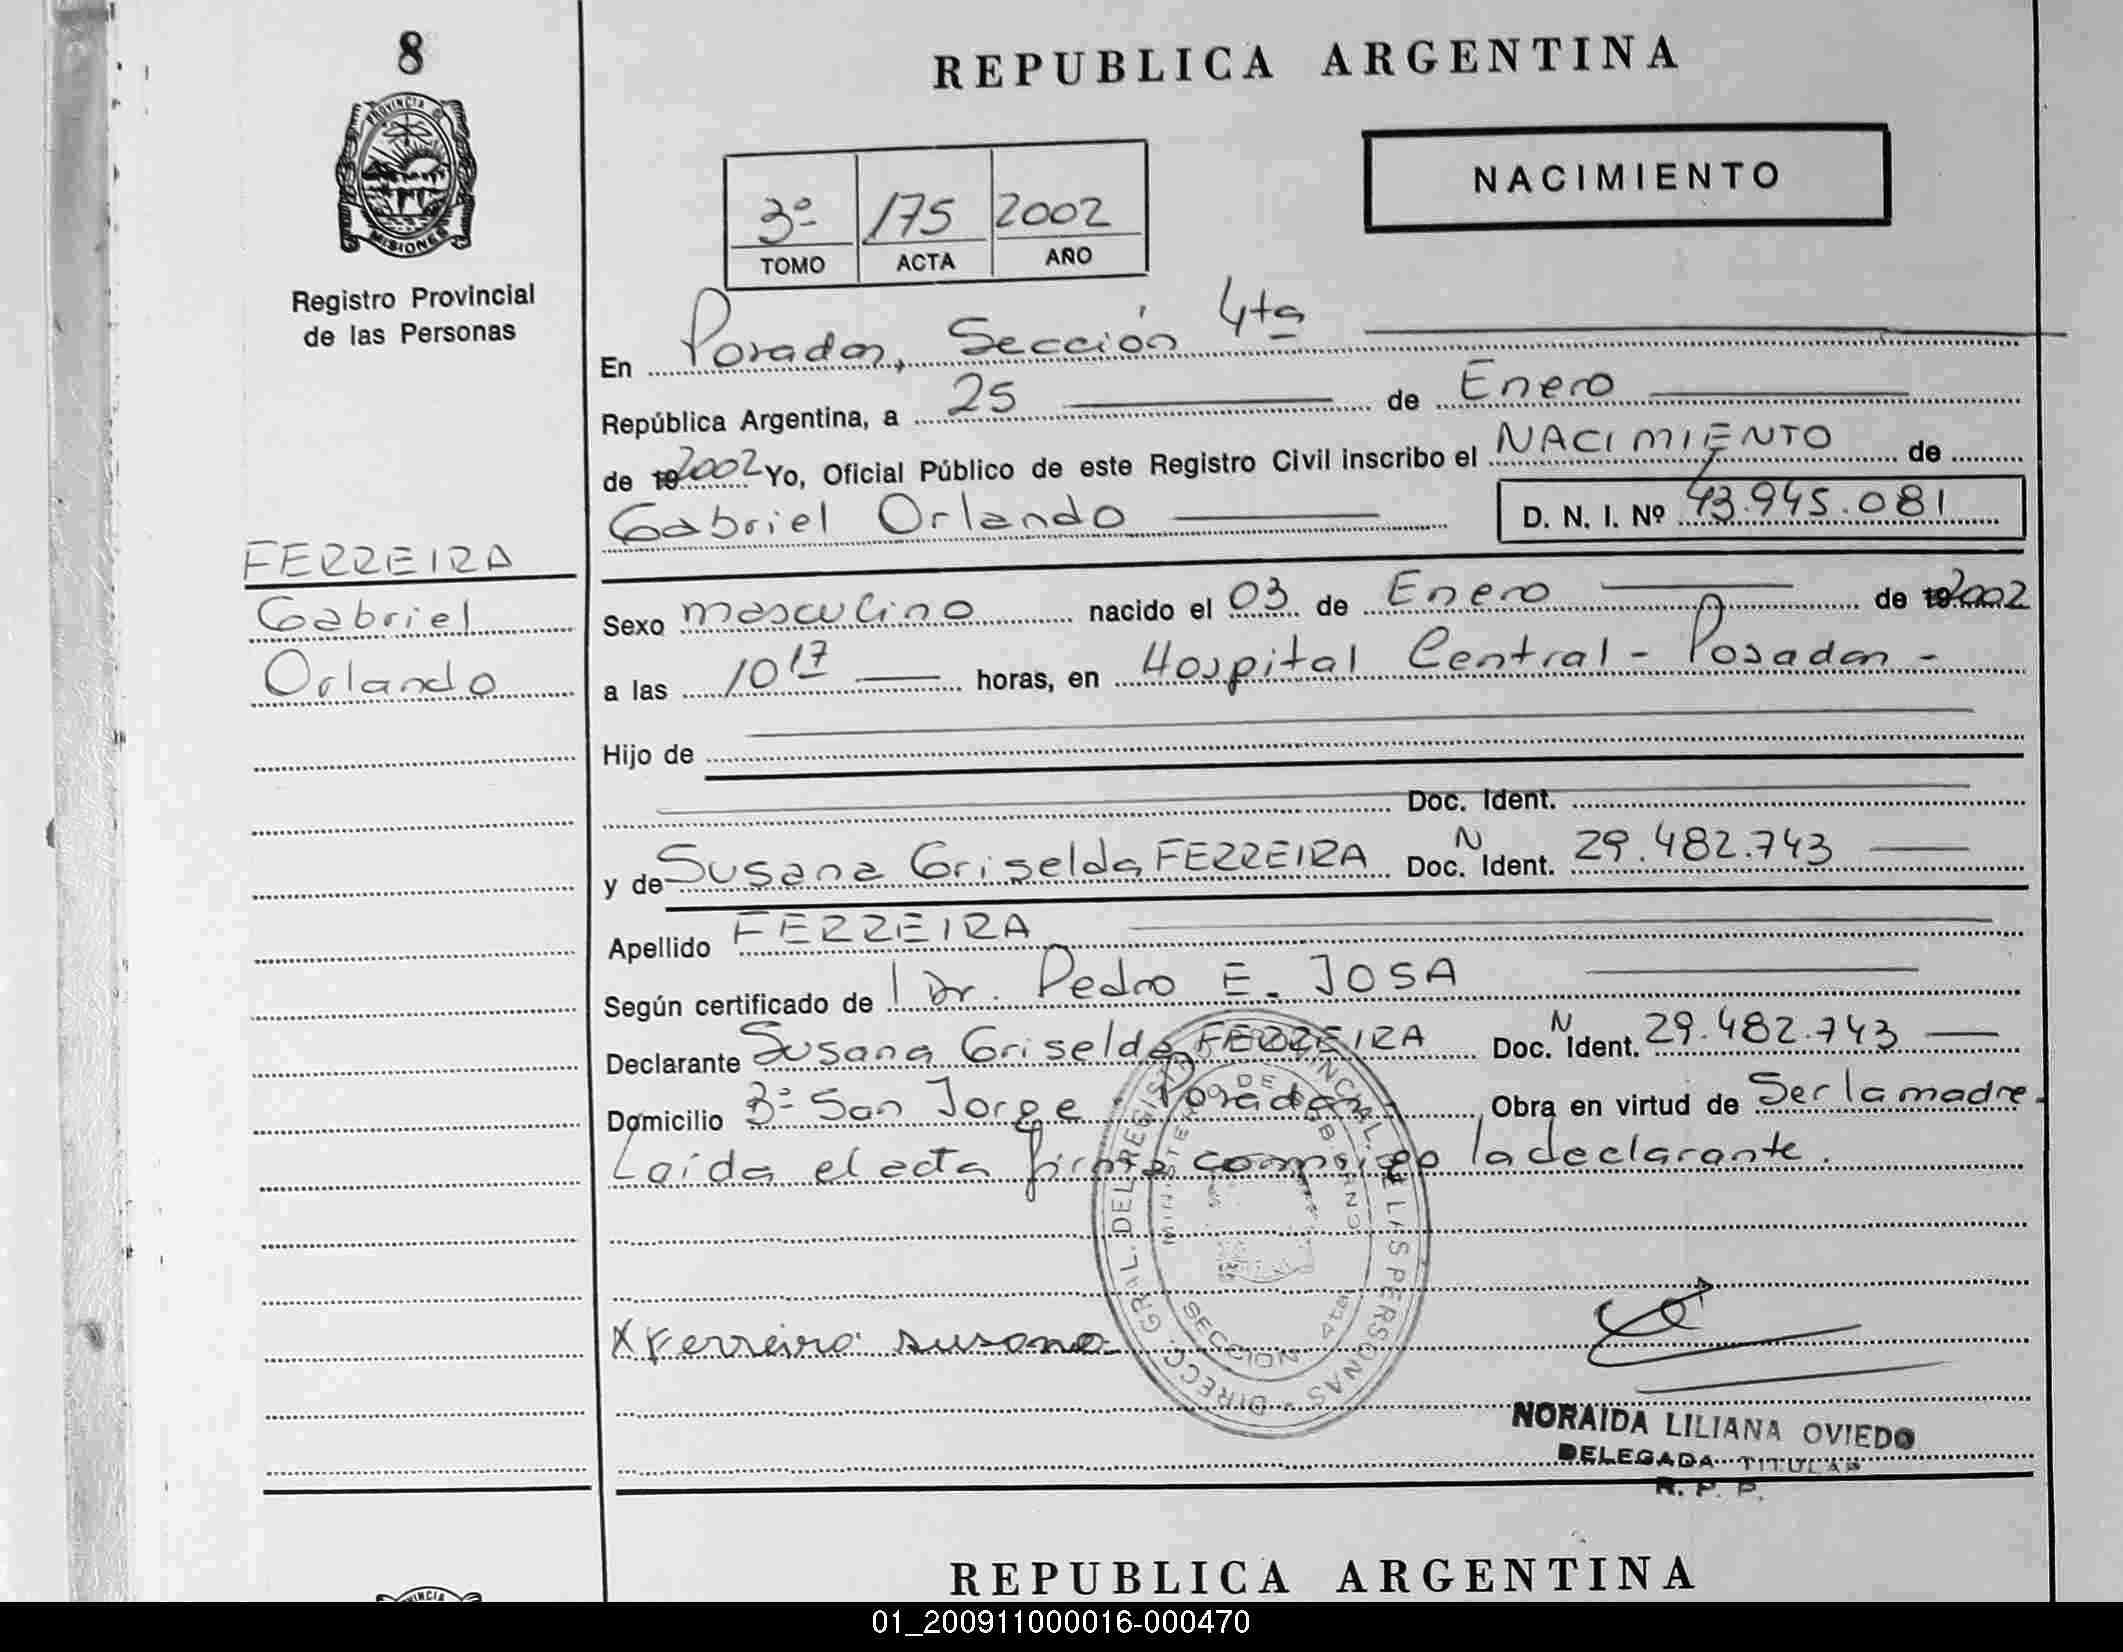 8
PROVINCIA DE
MISIONES
Registro Provincial
de las Personas
REPUBLICA ARGENTINA
NACIMIENTO
3º 175 2002
TOMO ACTA AÑO
En Posadas, Sección 4ta
República Argentina, a 25 de Enero
de 192002 Yo, Oficial Público de este Registro Civil inscribo el NACIMIENTO de
Gabriel Orlando D. N. I. Nº 43.945.081
FERREIRA
Gabriel
Orlando
Sexo masculino nacido el 03 de Enero de 192002
a las 10 17 horas, en Hospital Central - Posadas -
Hijo de
Doc. Ident.
y de Susana Griselda FERREIRA Doc. N Ident. 29.482.743
Apellido FERREIRA
Según certificado de Dr. Pedro E. JOSA
Declarante Susana Griselda FERREIRA Doc. N Ident. 29.482.743
Domicilio Bº San Jorge - Posadas Obra en virtud de Ser la madre.
Leída el acta firma conmigo la declarante.
X Ferreira susana
DIRECC. GRAL. DEL REGISTRO PROVINCIAL DE LAS PERSONAS
MINISTERIO DE GOBIERNO
SECCION 4ta
NORAIDA LILIANA OVIEDO
DELEGADA TITULAR
R. P. P.
REPUBLICA ARGENTINA
01_200911000016-000470